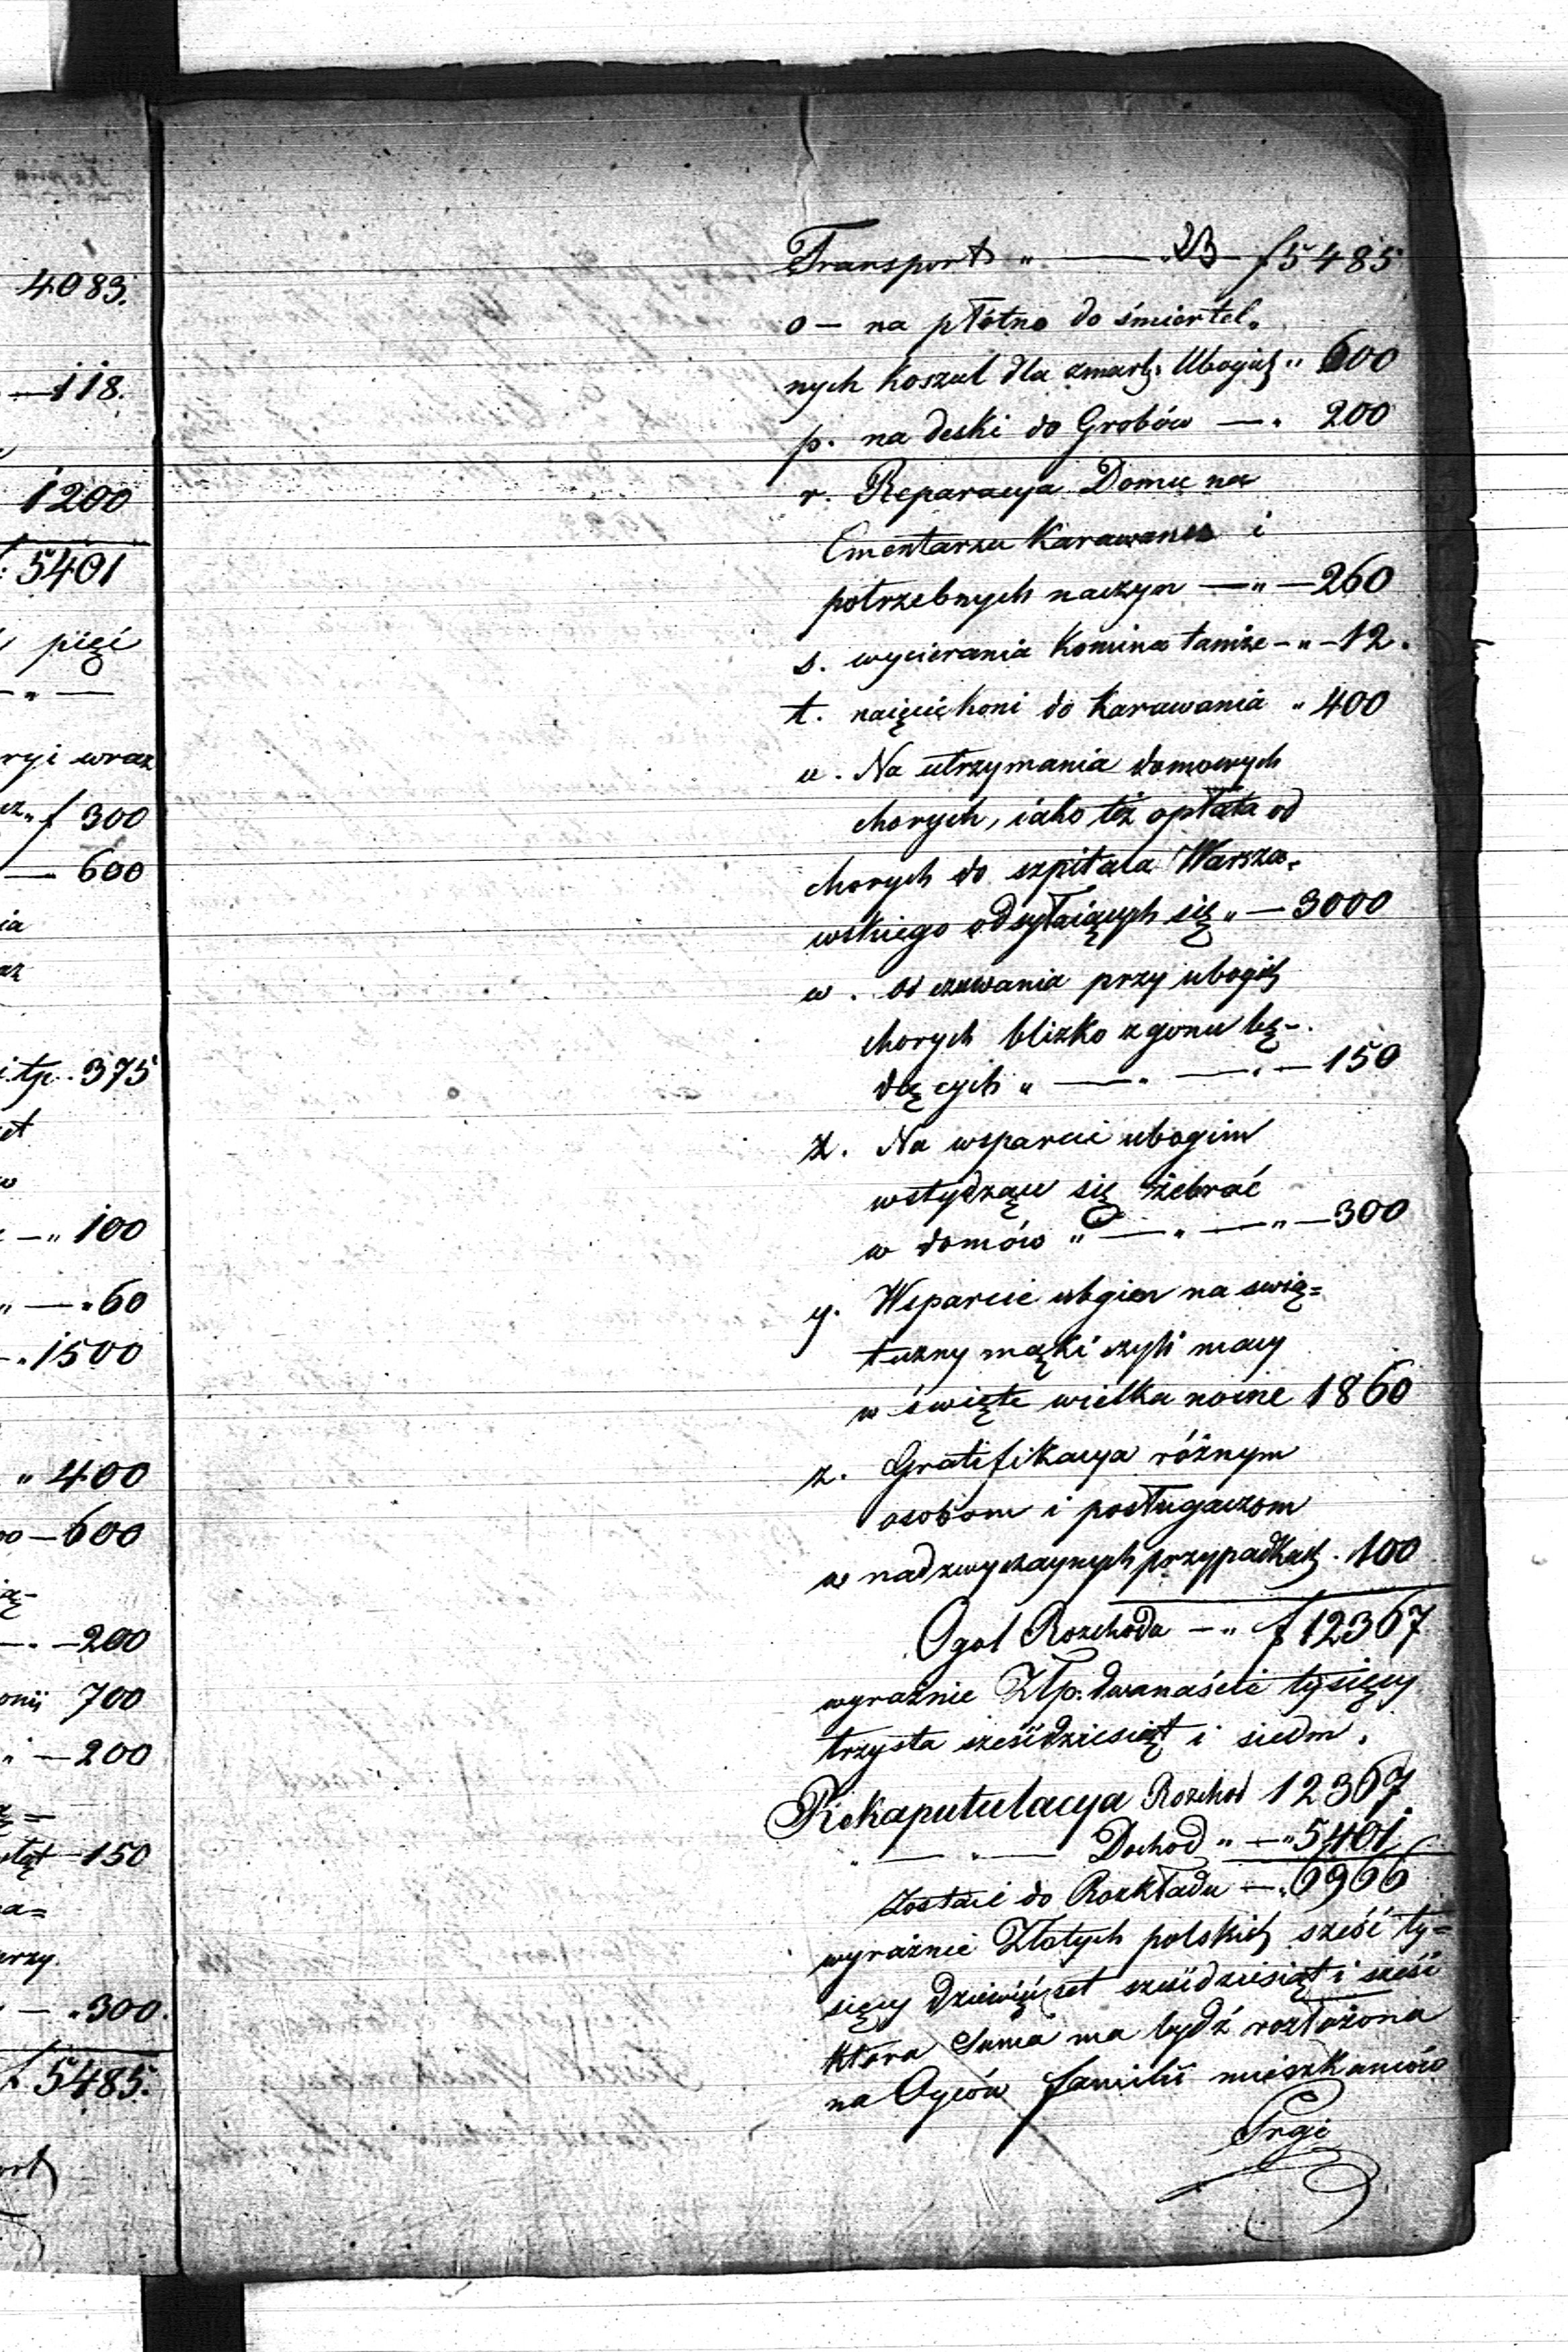 4083.
— 118.
1200
f 5401
pięć
— " —
ryi wraz
f 300
— 600
ia
az
375
et
w
— " 100
" — " 60
— " 1500
" 400
— 600
ią-
— 200
onii 700
— 200
— 150
na=
arzy
— " 300.
f 5485.
ort
23
Transport " — " — f 5485
o — na płótno do śmiertel„
nych koszul dla zmarłᵡ Ubogich " 600
p. na deski do Grobów — " 200
r. Reparacya Domu na
Cmentarzu Karawanu i
potrzebnych naczyn — " — 260
s. wycierania Komina tamże — " — 12.
t. naięcie koni do Karawania " 400
u. Na utrzymania domowych
chorych, iako też opłata od
chorych do szpitala Warsza„
wskiego odsyłaiących się " — 3000
w. od czuwania przy ubogich
chorych blizko zgonu bę-
dących " — " — " — 150
x. Na wsparcie ubogim
wstydzące się żebrać
w domów " — " — " — 300
y. Wsparcie ubgim na świą=
teczny mąki czyli macy
w święte wielka nocne 1860
z. Gratifikacya różnym
osobom i posługaczom
w nadzwyczaynych przypadkach . 100
Ogol Rozchodu — " f 12367
wyraźnie Złp. dwanaście tysięcy
trzysta sześćdziesiąt i siedm.
Rekaputulacya Rozchod 12367
" — " — Dochod " — " 5401
zostaie do Rozkładu — " 6966
wyraźnie Złotych polskich sześć ty=
sięcy dziewięćset sześćdziesiąt i sześć
która Suma ma bydź rozłożona
na Oyców familii mieszkańców